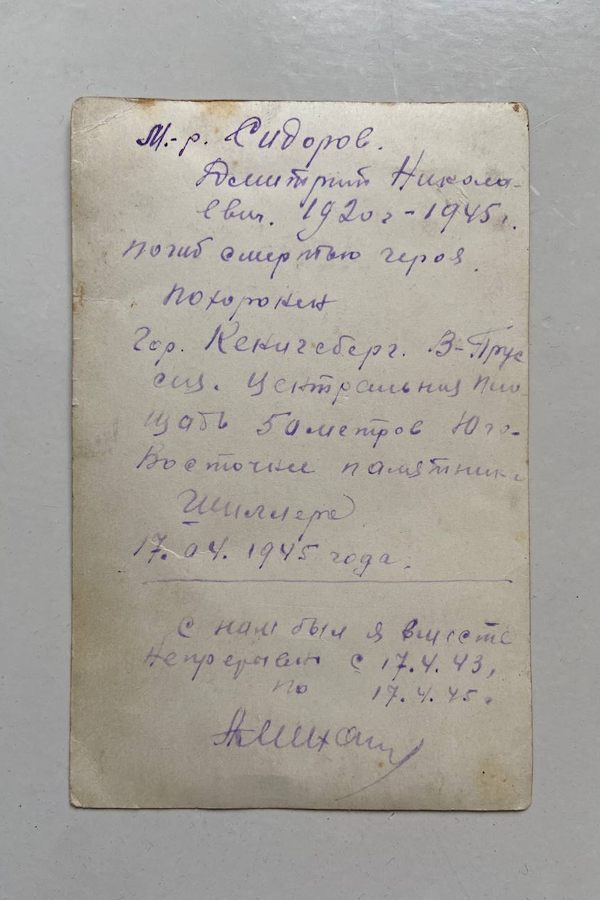 М.-р. Сидоров.
Дмитрий Никола-
евич. 1920г-1945г.
погиб смертью героя.
похоронен
гор. Кенигсберг. В-Прус
сия. Центральная пло
щадь 50 метров Юго-
Восточнее памятника
Шиллера
17.04.1945 года.
с ним был я вместе
непрерывно с 17.4.43,
по 17.4.45.